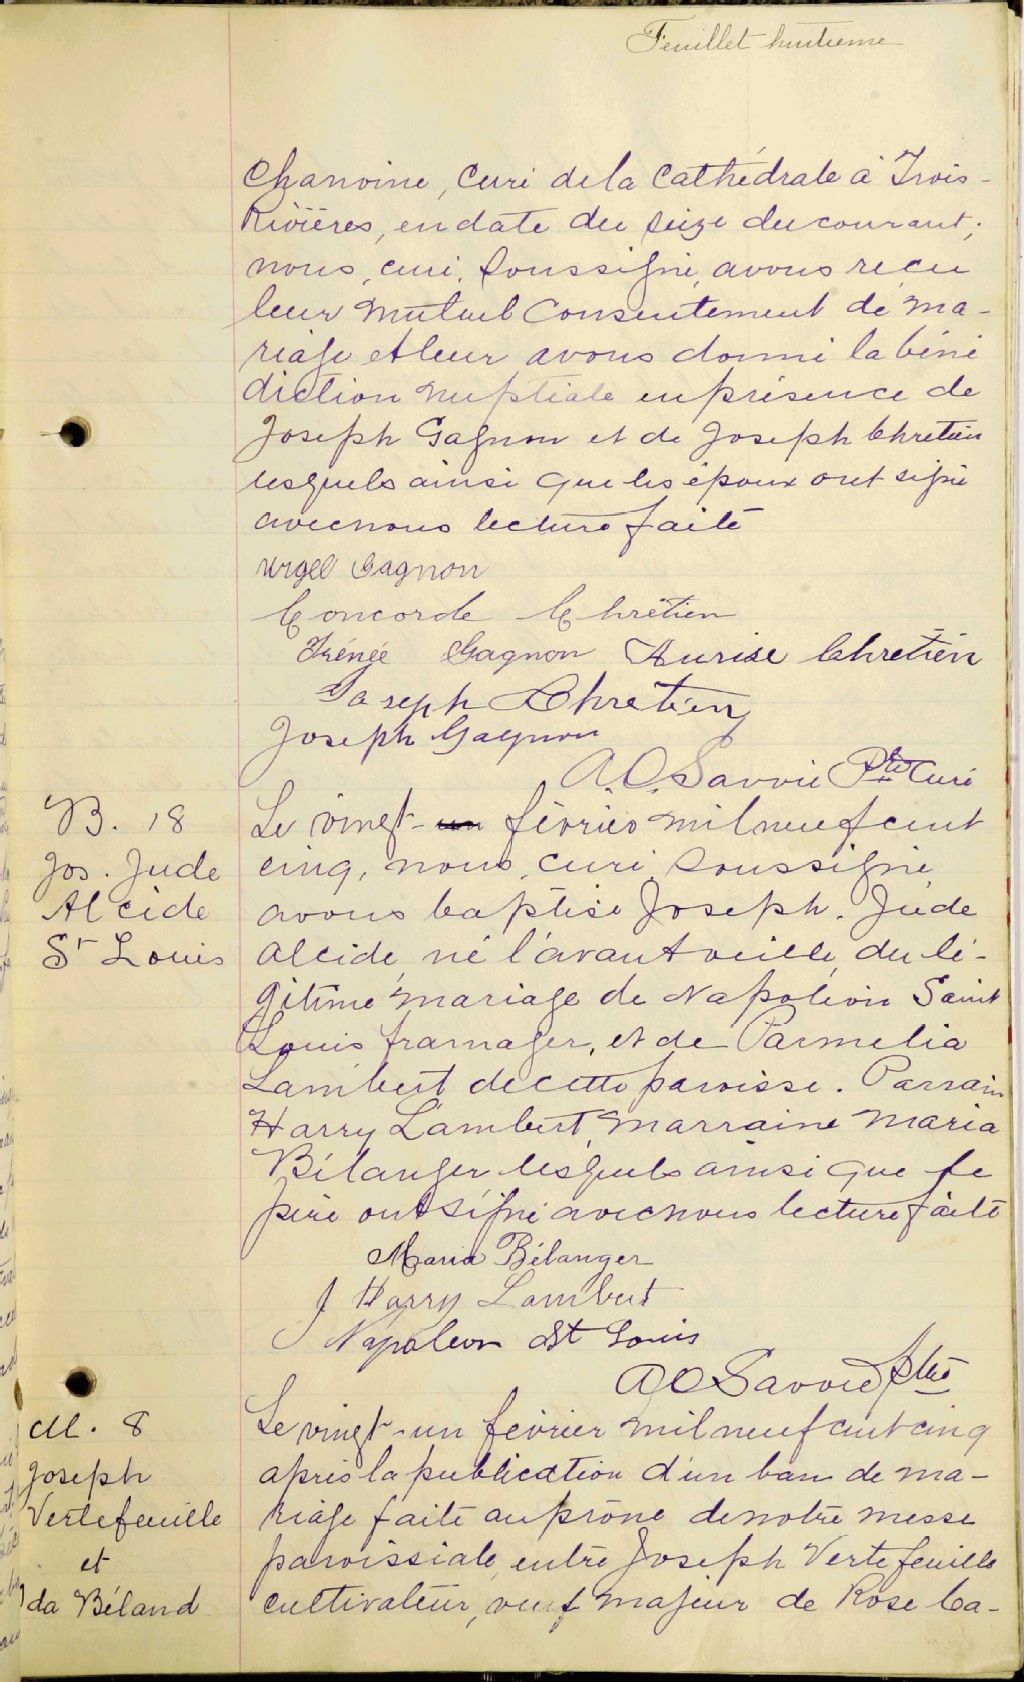 Feuillet huitième
Chanoine, Curé de la Cathédrale à Trois-
Rivières, en date du seize du courant;
nous, curé, soussigné, avons reçu
leur mutuel Consentement de ma-
riage et leur avons donné la béné
diction nuptiale en présence de
Joseph Gagnon et de Joseph Chretien
lesquels ainsi que les époux ont signé
avec nous lecture faite
Urgel Gagnon
Concorde Chrétien
Irénée Gagnon Aurise Chretien
Joseph Chretien
Joseph Gagnon
A.O. Savoie Ptre Curé
B. 18
Jos. Jude
Alcide
St Louis
Le vingt-un février mil neuf cent
cinq, nous, curé, soussigné,
avons baptisé Joseph. Jude
Alcide, né l'avant veille, du lé-
gitime mariage de Napoléon Saint
Louis fromager, et de Parmelia
Lambert de cette paroisse. Parrain
Harry Lambert, marraine Maria
Bélanger lesquels ainsi que le
père ont signé avec nous lecture faite
Maria Bélanger
J Harry Lambert
Napoleon St Louis
A O Savoie ptre
M. 8
Joseph
Vertefeuille
et
da Béland
Le vingt-un février mil neuf cent cinq
après la publication d'un ban de ma-
riage faite au prône de notre messe
paroissiale, entre Joseph Vertefeuille
cultivateur, veuf majeur de Rose La-